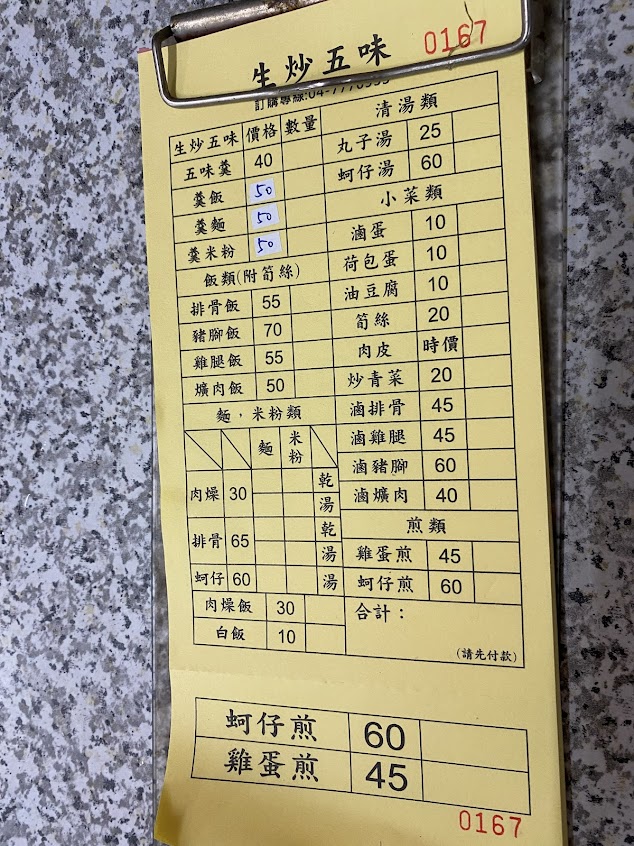 生炒五味 0167
訂購專線:04-7770
生炒五味 價格 數量
五味羹 40
羹飯 50
羹麵 50
羹米粉 50
飯類(附筍絲)
排骨飯 55
豬腳飯 70
雞腿飯 55
爌肉飯 50
麵,米粉類
麵 米粉
肉燥 30 乾
湯
排骨 65 乾
湯
蚵仔 60 湯
肉燥飯 30
白飯 10
清湯類
丸子湯 25
蚵仔湯 60
小菜類
滷蛋 10
荷包蛋 10
油豆腐 10
筍絲 20
肉皮 時價
炒青菜 20
滷排骨 45
滷雞腿 45
滷豬腳 60
滷爌肉 40
煎類
雞蛋煎 45
蚵仔煎 60
合計:
(請先付款)
蚵仔煎 60
雞蛋煎 45
0167